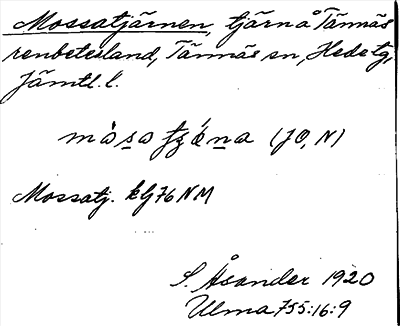 Mossatjärnen, tjärn å Tännäs
renbetesland, Tännäs sn, Hede tg,
Jämtl. l.
(JO, N)
Mossatj. kbj 76 NM
S. Åsander 1920
Ulma 755:16:9